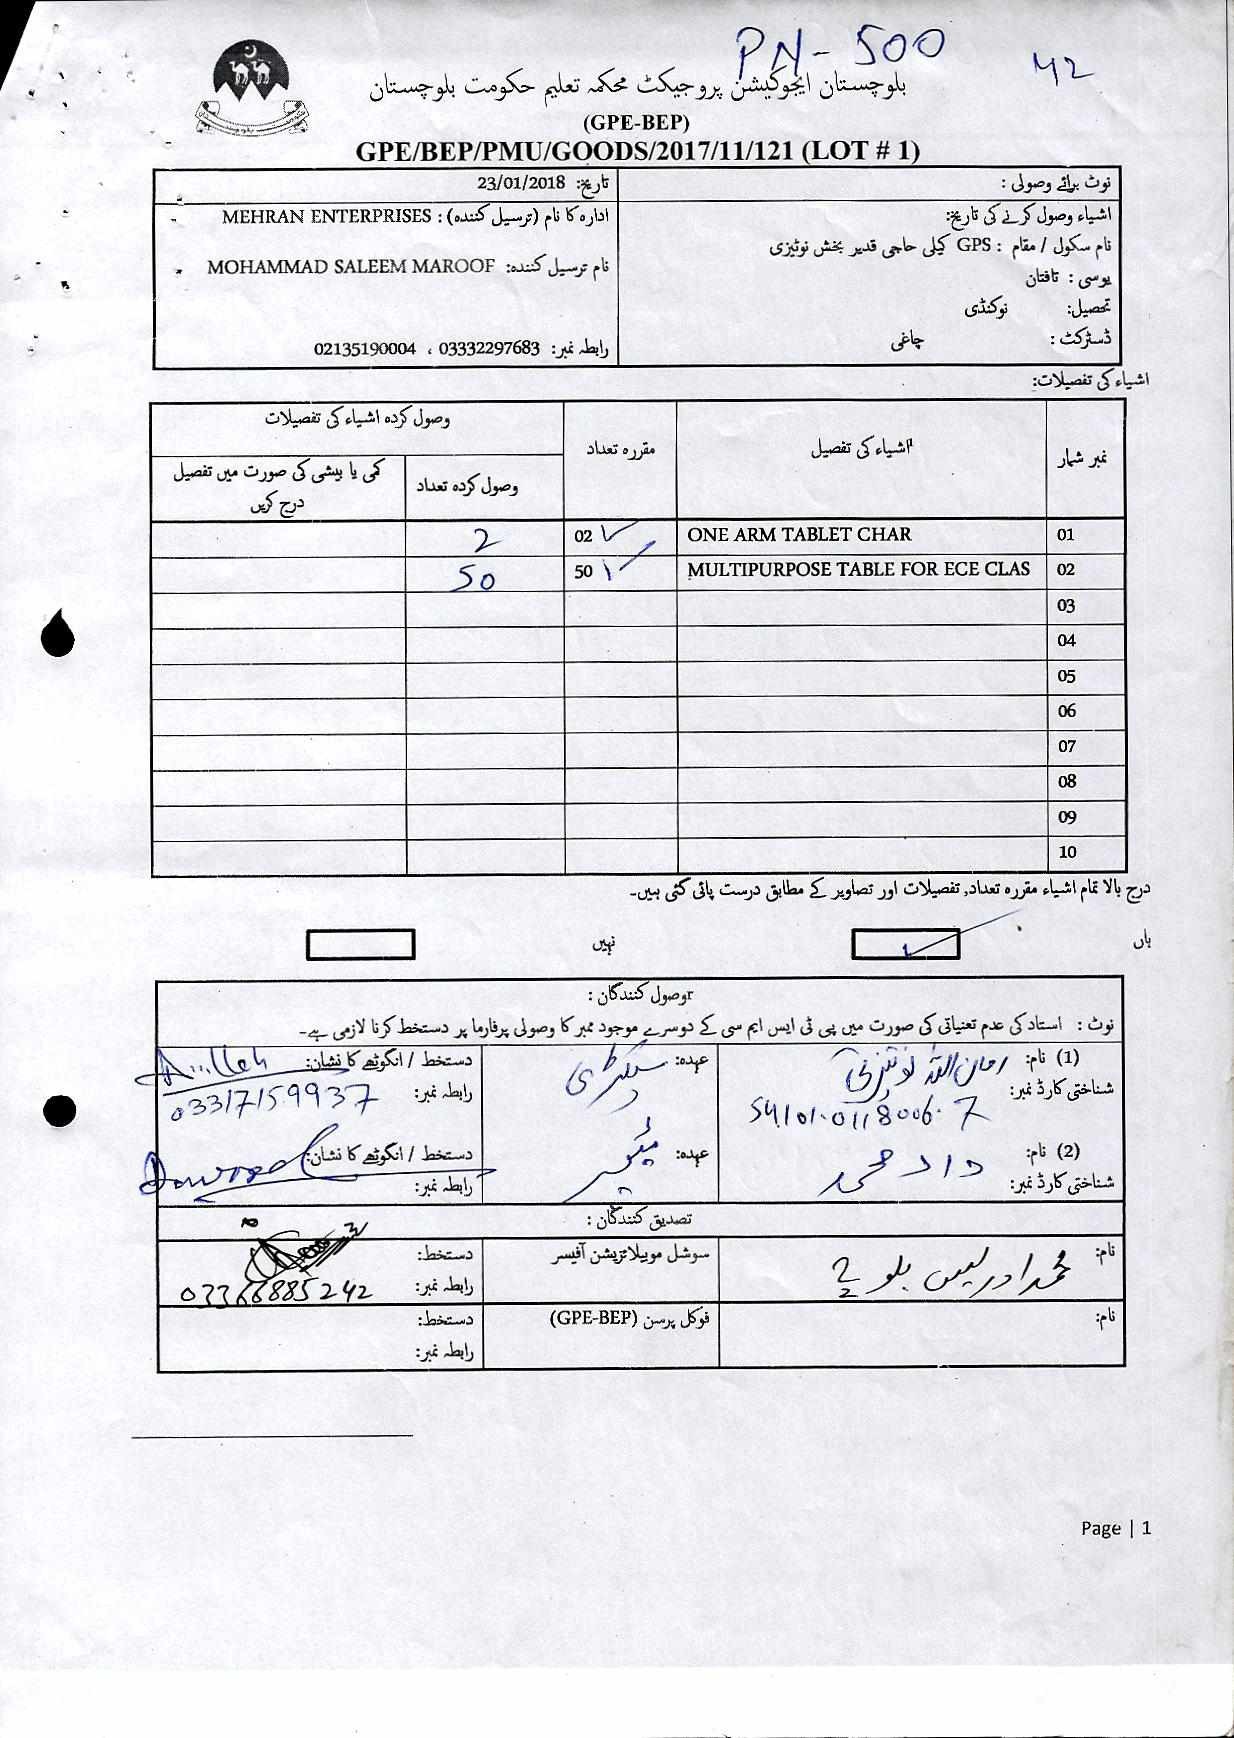 PN-500
42
بلوچستان ایجوکیشن پروجیکٹ محکمہ تعلیم حکومت بلوچستان
(GPE-BEP)
GPE/BEP/PMU/GOODS/2017/11/121 (LOT # 1)
نوٹ برائے وصولی :
تاریخ: 23/01/2018
اشیاء وصول کرنے کی تاریخ:
نام سکول / مقام : GPS کیلی حاجی قدیر بخش نوتیزی
یوسی : تافتان
تحصیل: نوکنڈی
ڈسٹرکٹ : چاغی
ادارہ کا نام (ترسیل کنندہ) : MEHRAN ENTERPRISES
نام ترسیل کنندہ: MOHAMMAD SALEEM MAROOF
رابطہ نمبر: 03332297683 ، 02135190004
اشیاء کی تفصیلات:
نمبر شمار اشیاء کی تفصیل مقررہ تعداد وصول کردہ اشیاء کی تفصیلات
وصول کردہ تعداد کمی یا بیشی کی صورت میں تفصیل درج کریں
01 ONE ARM TABLET CHAR 02 2
02 MULTIPURPOSE TABLE FOR ECE CLAS 50 50
03
04
05
06
07
08
09
10
درج بالا تمام اشیاء مقررہ تعداد, تفصیلات اور تصاویر کے مطابق درست پائی گئی ہیں۔
ہاں نہیں
وصول کنندگان :
نوٹ : استاد کی عدم تعنیاتی کی صورت میں پی ٹی ایس ایم سی کے دوسرے موجود ممبر کا وصولی پرفارما پر دستخط کرنا لازمی ہے۔
(1) نام: امان اللہ نوتیزئی عہدہ: سیکرٹری دستخط / انگوٹھے کا نشان:
شناختی کارڈ نمبر: 54101-0118006-7 رابطہ نمبر: 03317159937
(2) نام: داد محمد عہدہ: دستخط / انگوٹھے کا نشان:
شناختی کارڈ نمبر: رابطہ نمبر:
تصدیق کنندگان :
نام: محمد ادریس بلوچ سوشل موبیلائزیشن آفیسر دستخط:
رابطہ نمبر: 03366885242
نام: فوکل پرسن (GPE-BEP) دستخط:
رابطہ نمبر:
Page | 1